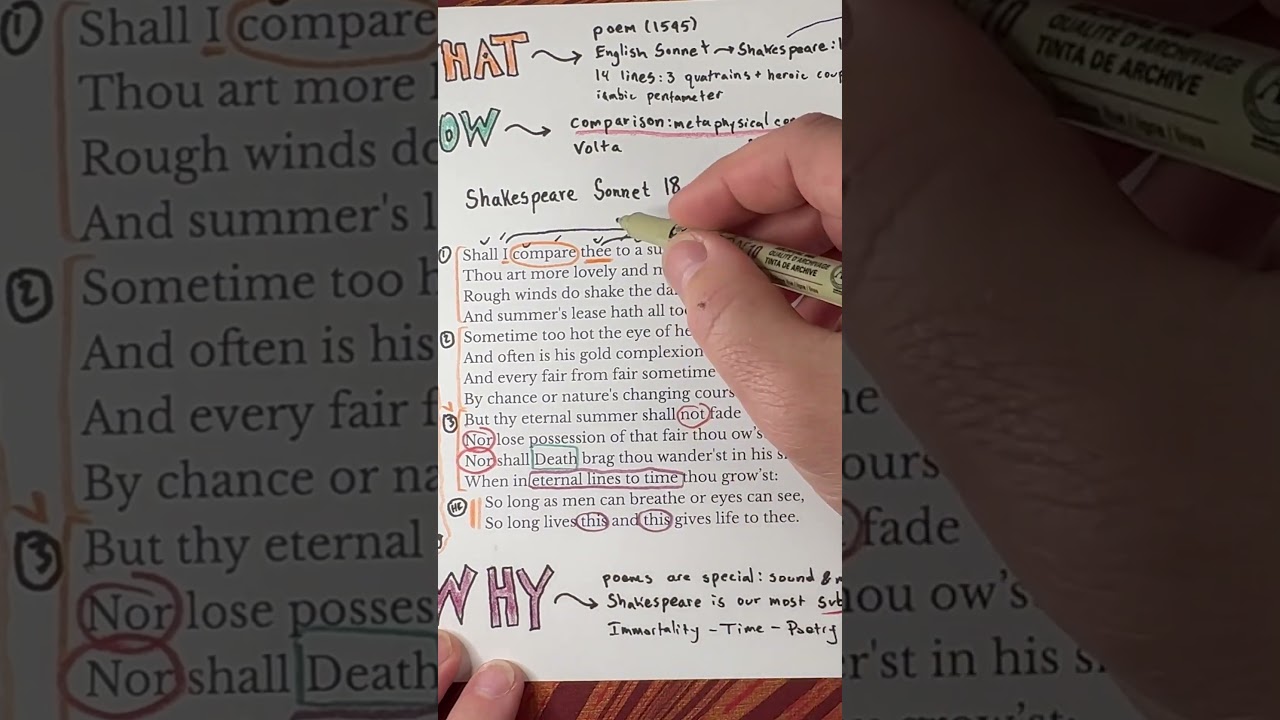 HAT
poem (1595)
English Sonnet → Shakespeare:
14 lines: 3 quatrains + heroic coup
iambic pentameter
OW
comparison: metaphysical
Volta
Shakespeare Sonnet 18
① Shall I compare thee to a su
Thou art more lovely and m
Rough winds do shake the da
And summer's lease hath all to
② Sometime too hot the eye of he
And often is his gold complexion
And every fair from fair sometime
By chance or nature's changing cours
③ But thy eternal summer shall not fade
Nor lose possession of that fair thou ow's
Nor shall Death brag thou wander'st in his s
When in eternal lines to time thou grow'st:
HC So long as men can breathe or eyes can see,
So long lives this and this gives life to thee.
WHY
poems are special: sound &
Shakespeare is our most sub
Immortality - Time - Poetry
10
QUALITÉ D'ARCHIVAGE
TINTA DE ARCHIVE
① Shall I compare
Thou art more
Rough winds do
And summer's l
② Sometime too h
And often is his
And every fair f
By chance or na
③ But thy eternal
Nor lose posses
Nor shall Death
10
QUALITÉ D'ARCHIVAGE
TINTA DE ARCHIVE
ne
ours
fade
ou ow's
r'st in his s